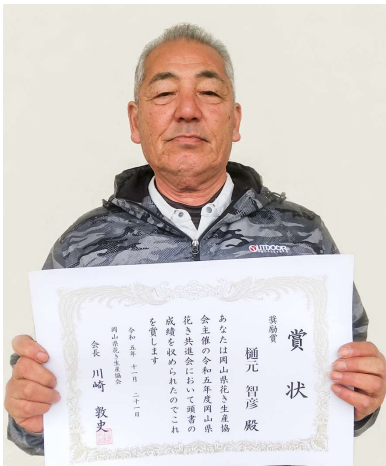 OUTDOOR
賞状
奨励賞
樋元 智彦 殿
あなたは岡山県花き生産協
会主催の令和五年度岡山県
花き共進会において頭書の
成績を収められたのでこれ
を賞します
令和五年 十一月 二十一日
岡山県花き生産協会
会長 川崎 敦史